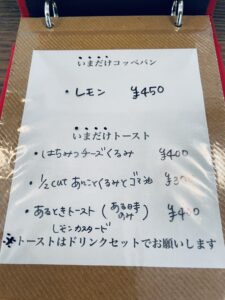 いまだけコッペパン
・レモン ¥450
いまだけトースト
・はちみつチーズくるみ ¥400
・1/2cut あんことくるみとゴマ油
・あるときトースト (ある時のみ)
レモンカスタード
※トーストはドリンクセットでお願いします